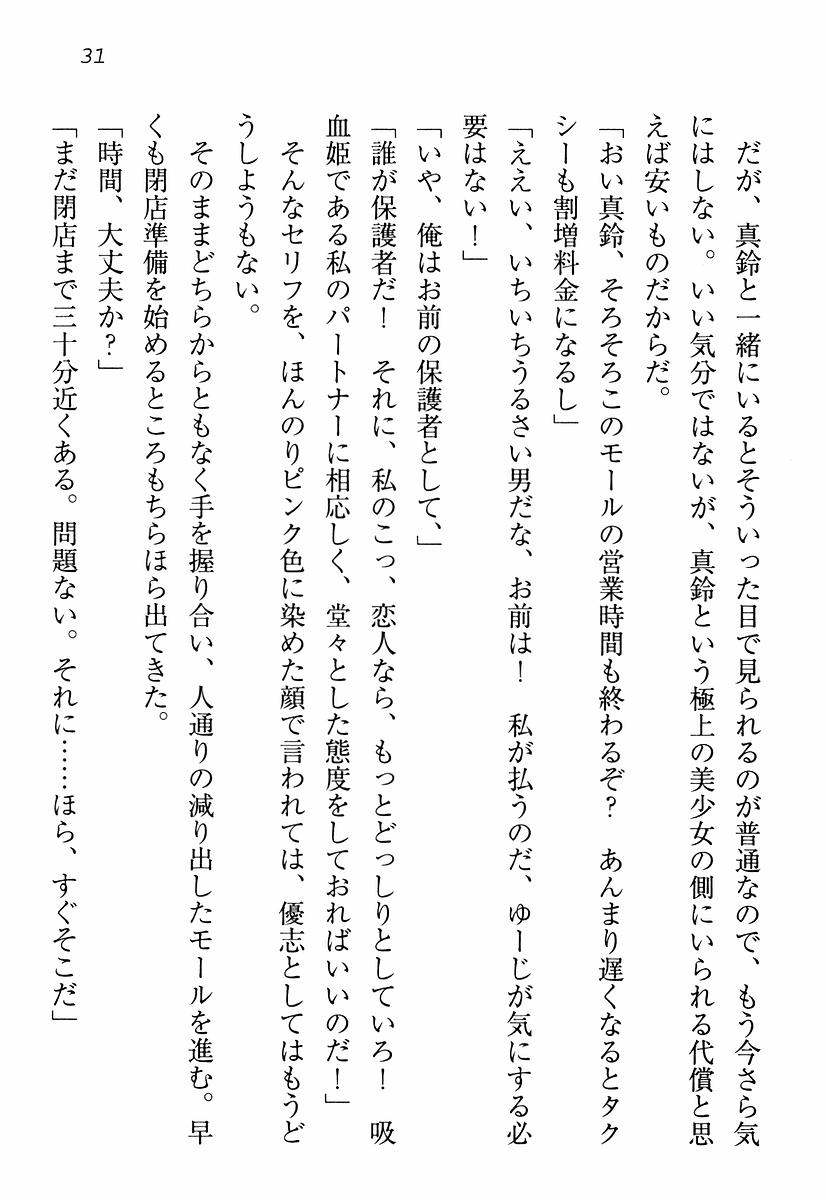 31
だが、真鈴と一緒にいるとそういった目で見られるのが普通なので、もう今さら気
にはしない。いい気分ではないが、真鈴という極上の美少女の側にいられる代償と思
えば安いものだからだ。
「おい真鈴、そろそろこのモールの営業時間も終わるぞ？　あんまり遅くなるとタク
シーも割増料金になるし」
「ええい、いちいちうるさい男だな、お前は！　私が払うのだ、ゆーじが気にする必
要はない！」
「いや、俺はお前の保護者として、」
「誰が保護者だ！　それに、私のこっ、恋人なら、もっとどっしりとしていろ！　吸
血姫である私のパートナーに相応しく、堂々とした態度をしておればいいのだ！」
そんなセリフを、ほんのりピンク色に染めた顔で言われては、優志としてはもうど
うしようもない。
そのままどちらからともなく手を握り合い、人通りの減り出したモールを進む。早
くも閉店準備を始めるところもちらほら出てきた。
「時間、大丈夫か？」
「まだ閉店まで三十分近くある。問題ない。それに……ほら、すぐそこだ」